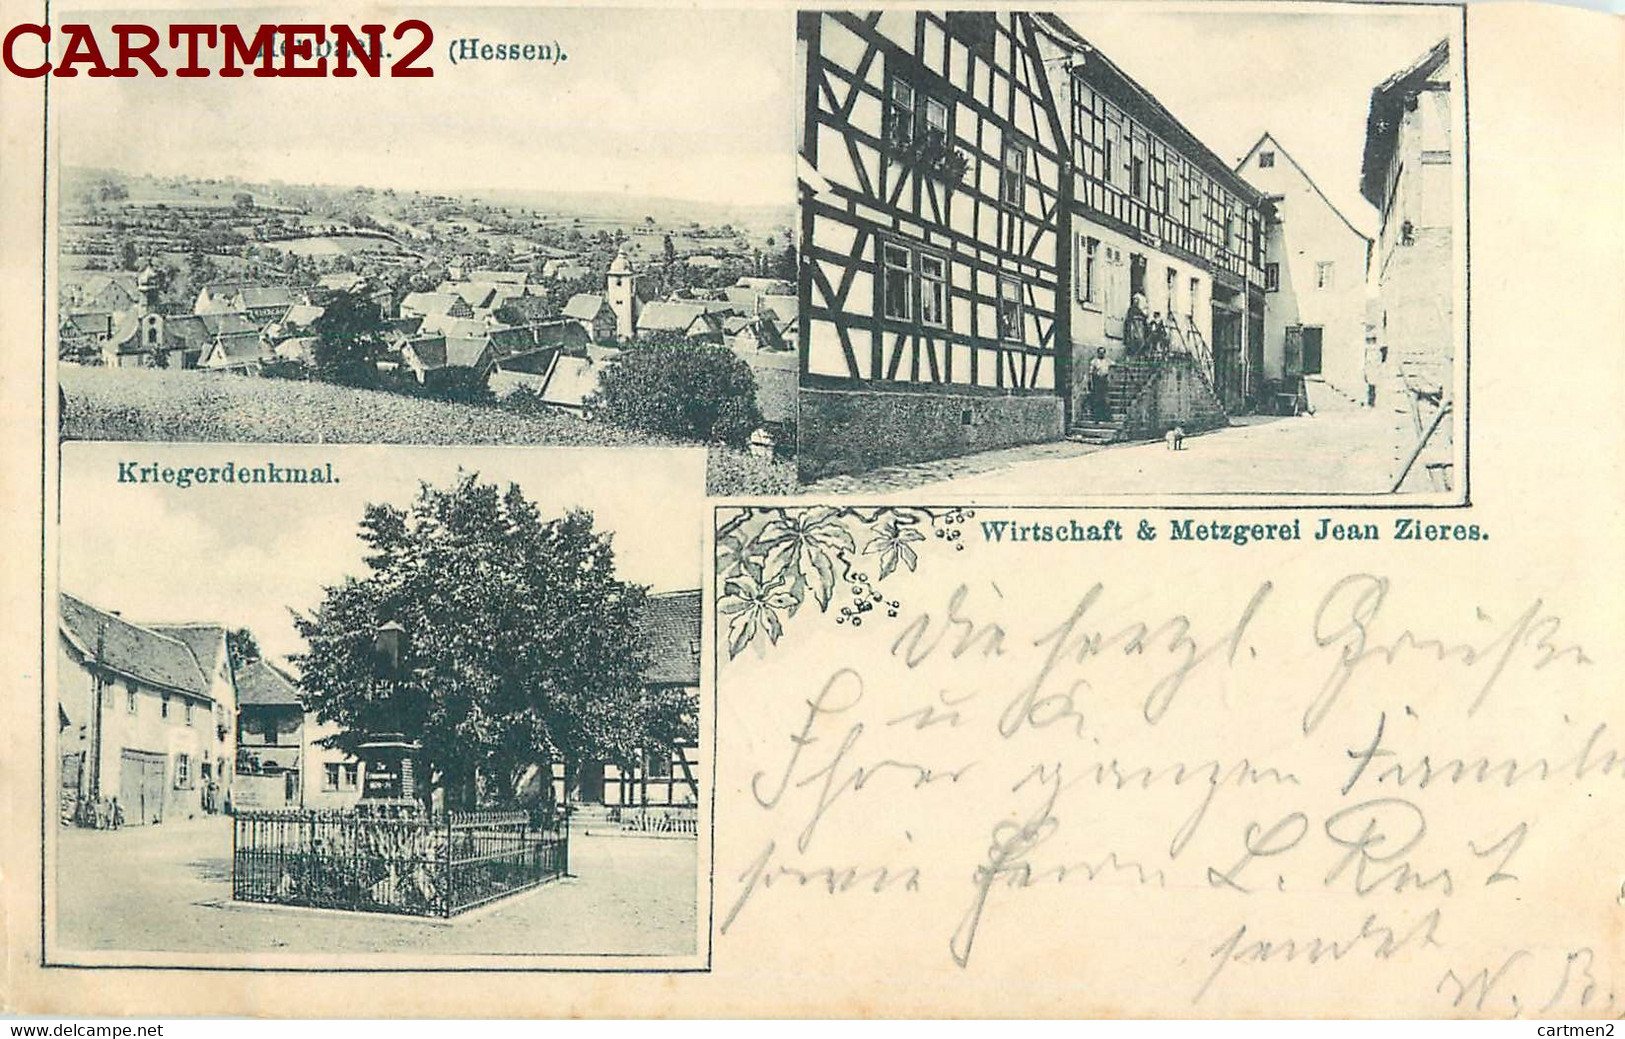 CARTMEN2
(Hessen).
Kriegerdenkmal.
Wirtschaft & Metzgerei Jean Zieres.
Die herzl. Grüße
u. a.
Ihrer ganzen Familie
sowie Herrn L. Rust
sendet
W. B.
www.delcampe.net
cartmen2